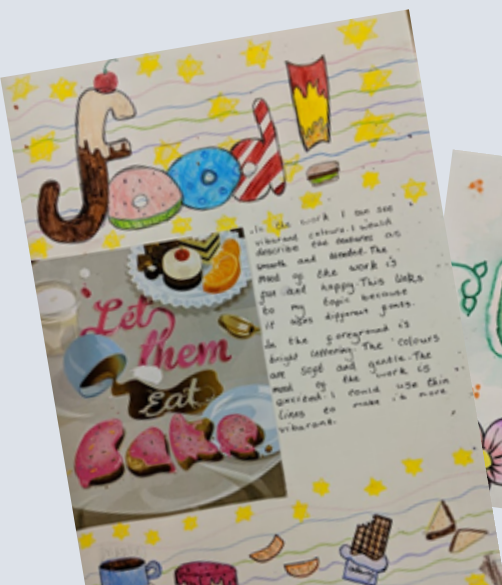 Food!
Let
them
Eat
CAKE
In the work I can see
vibarand colours. I would
describe the textures as
smooth and blended. The
mood of the work is
fun and happy. This links
to my topic because
it uses different fonts.
In the foreground is
bright lettering. The colours
are soft and gentle. The
mood of the work is
excited. I could use thin
lines to make it more
vibarant.